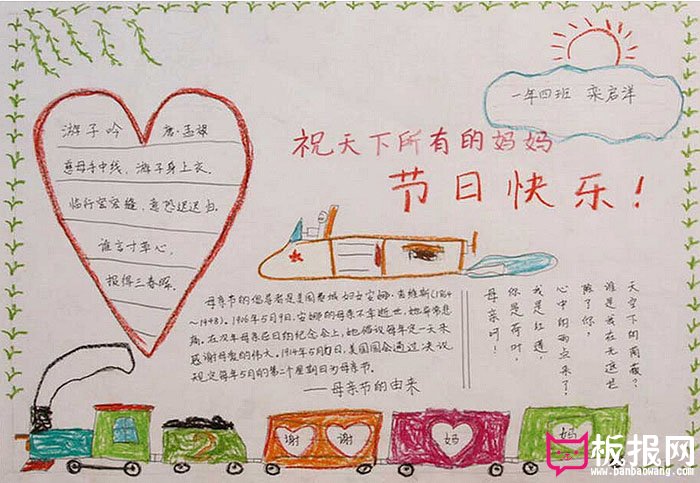 一年四班 栾启洋
游子吟 唐·孟
慈母手中线，游子身上衣。
临行密密缝，意恐迟迟归。
谁言寸草心，
报得三春晖。
祝天下所有的妈妈
节日快乐！
母亲节的倡导者是美国费城妇女安娜·吉维斯(1864
~1948)。1906年5月9日，安娜的母亲不幸逝世，她非常悲
痛。在次年母亲忌日的纪念会上，她倡议每年定一天来
感谢母爱的伟大。1914年5月日，美国国会通过决议
规定每年5月的第二个星期日为母亲节。
——母亲节的由来
母亲啊！
你是荷叶，
我是红莲，
心中的雨点来了，
除了你，
谁是我在无遮拦
天空下的荫蔽？
谢 谢 妈 妈
板报网
www.banbaowang.com